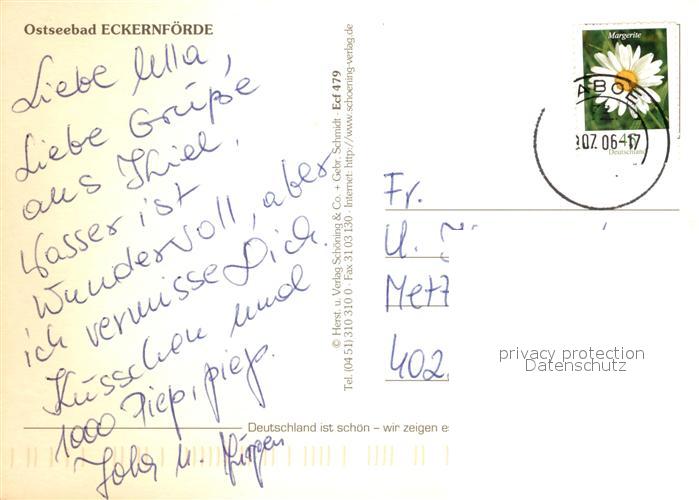 Ostseebad ECKERNFÖRDE
Liebe Ulla,
Liebe Grüße
aus Kiel.
Wasser ist
Wundervoll, aber
ich vermisse Dich.
Küsschen und
1000 Piep, piep.
u. Jürgen
© Herst. u. Verlag Schöning & Co. + Gebr. Schmidt · Ecf 479
Tel. (04 51) 310 310 0 · Fax 31 03 130 · Internet: http://www.schoening-verlag.de
Deutschland ist schön – wir zeigen es
Margerite
45
Deutschland
ABOE
07.06-17
Fr.
U.
Mett
402
privacy protection
Datenschutz